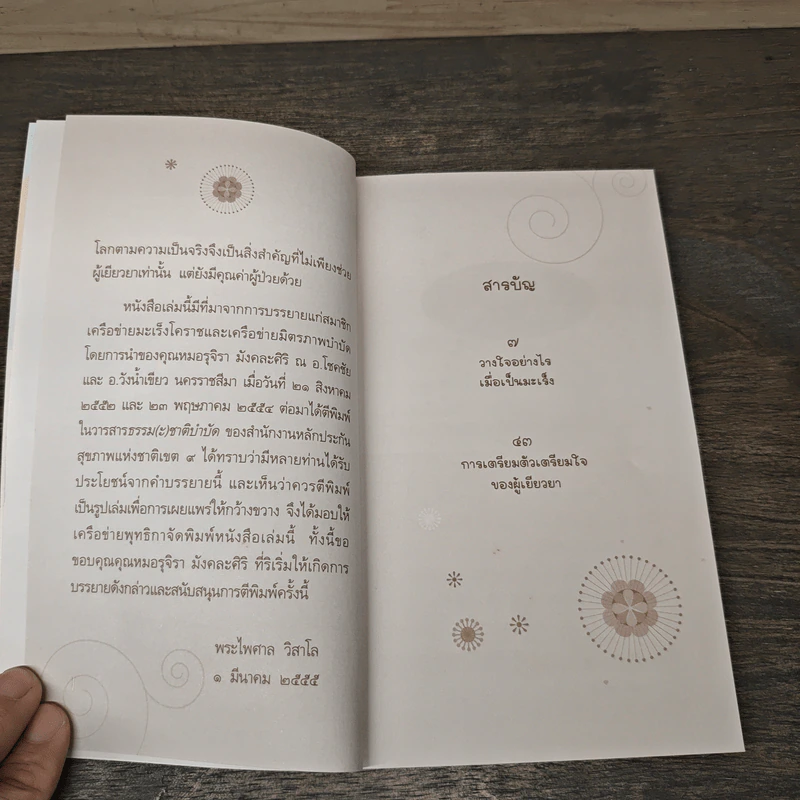 โลกตามความเป็นจริงจึงเป็นสิ่งสำคัญที่ไม่เพียงช่วย
ผู้เยียวยาเท่านั้น แต่ยังมีคุณค่าผู้ป่วยด้วย
หนังสือเล่มนี้มีที่มาจากการบรรยายแก่สมาชิก
เครือข่ายมะเร็งโคราชและเครือข่ายมิตรภาพบำบัด
โดยการนำของคุณหมอรุจิรา มังคละศิริ ณ อ.โชคชัย
และ อ.วังน้ำเขียว นครราชสีมา เมื่อวันที่ ๒๑ สิงหาคม
๒๕๕๒ และ ๒๓ พฤษภาคม ๒๕๕๔ ต่อมาได้ตีพิมพ์
ในวารสารธรรม(ะ)ชาติบำบัด ของสำนักงานหลักประกัน
สุขภาพแห่งชาติเขต ๙ ได้ทราบว่ามีหลายท่านได้รับ
ประโยชน์จากคำบรรยายนี้ และเห็นว่าควรตีพิมพ์
เป็นรูปเล่มเพื่อการเผยแพร่ให้กว้างขวาง จึงได้มอบให้
เครือข่ายพุทธิกาจัดพิมพ์หนังสือเล่มนี้ ทั้งนี้ขอ
ขอบคุณคุณหมอรุจิรา มังคละศิริ ที่ริเริ่มให้เกิดการ
บรรยายดังกล่าวและสนับสนุนการตีพิมพ์ครั้งนี้
พระไพศาล วิสาโล
๑ มีนาคม ๒๕๕๕
สารบัญ
๗
วางใจอย่างไร
เมื่อเป็นมะเร็ง
๔๓
การเตรียมตัวเตรียมใจ
ของผู้เยียวยา